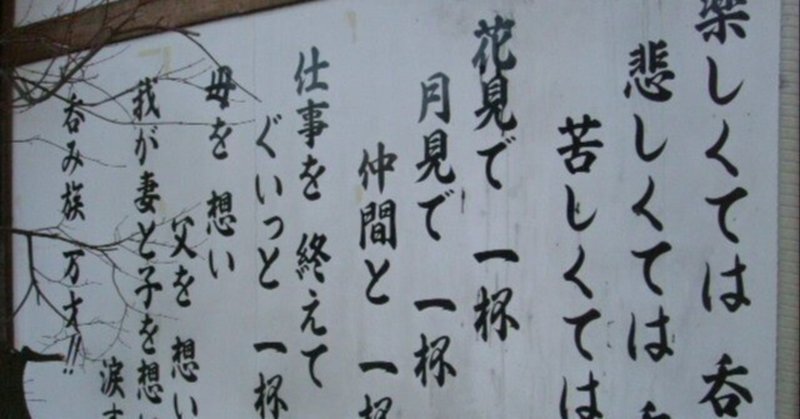 楽しくては 呑
悲しくては
苦しくては
花見で 一杯
月見で 一杯
仲間と 一杯
仕事を 終えて
ぐいっと 一杯
母を 想い
父を 想い
我が妻と子を想い
涙
呑み族 万才!!